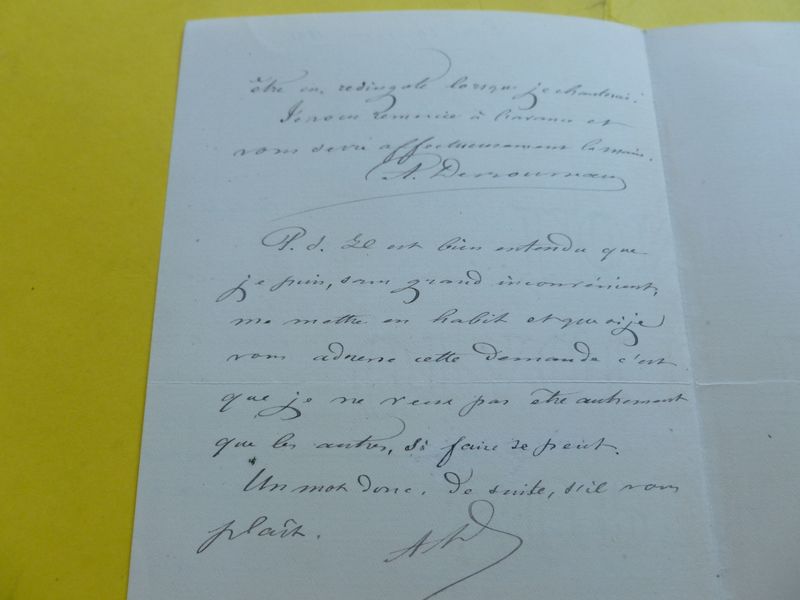 être en redingote lorsque je chanterai.
Je vous remercie à l'avance et
vous serre affectueusement la main.
A. Desrousseaux
P. S. Il est bien entendu que
je puis, sans grand inconvénient,
me mettre en habit et que si je
vous adresse cette demande c'est
que je ne veux pas être autrement
que les autres, si faire se peut.
Un mot donc, de suite, s'il vous
plaît.
AD